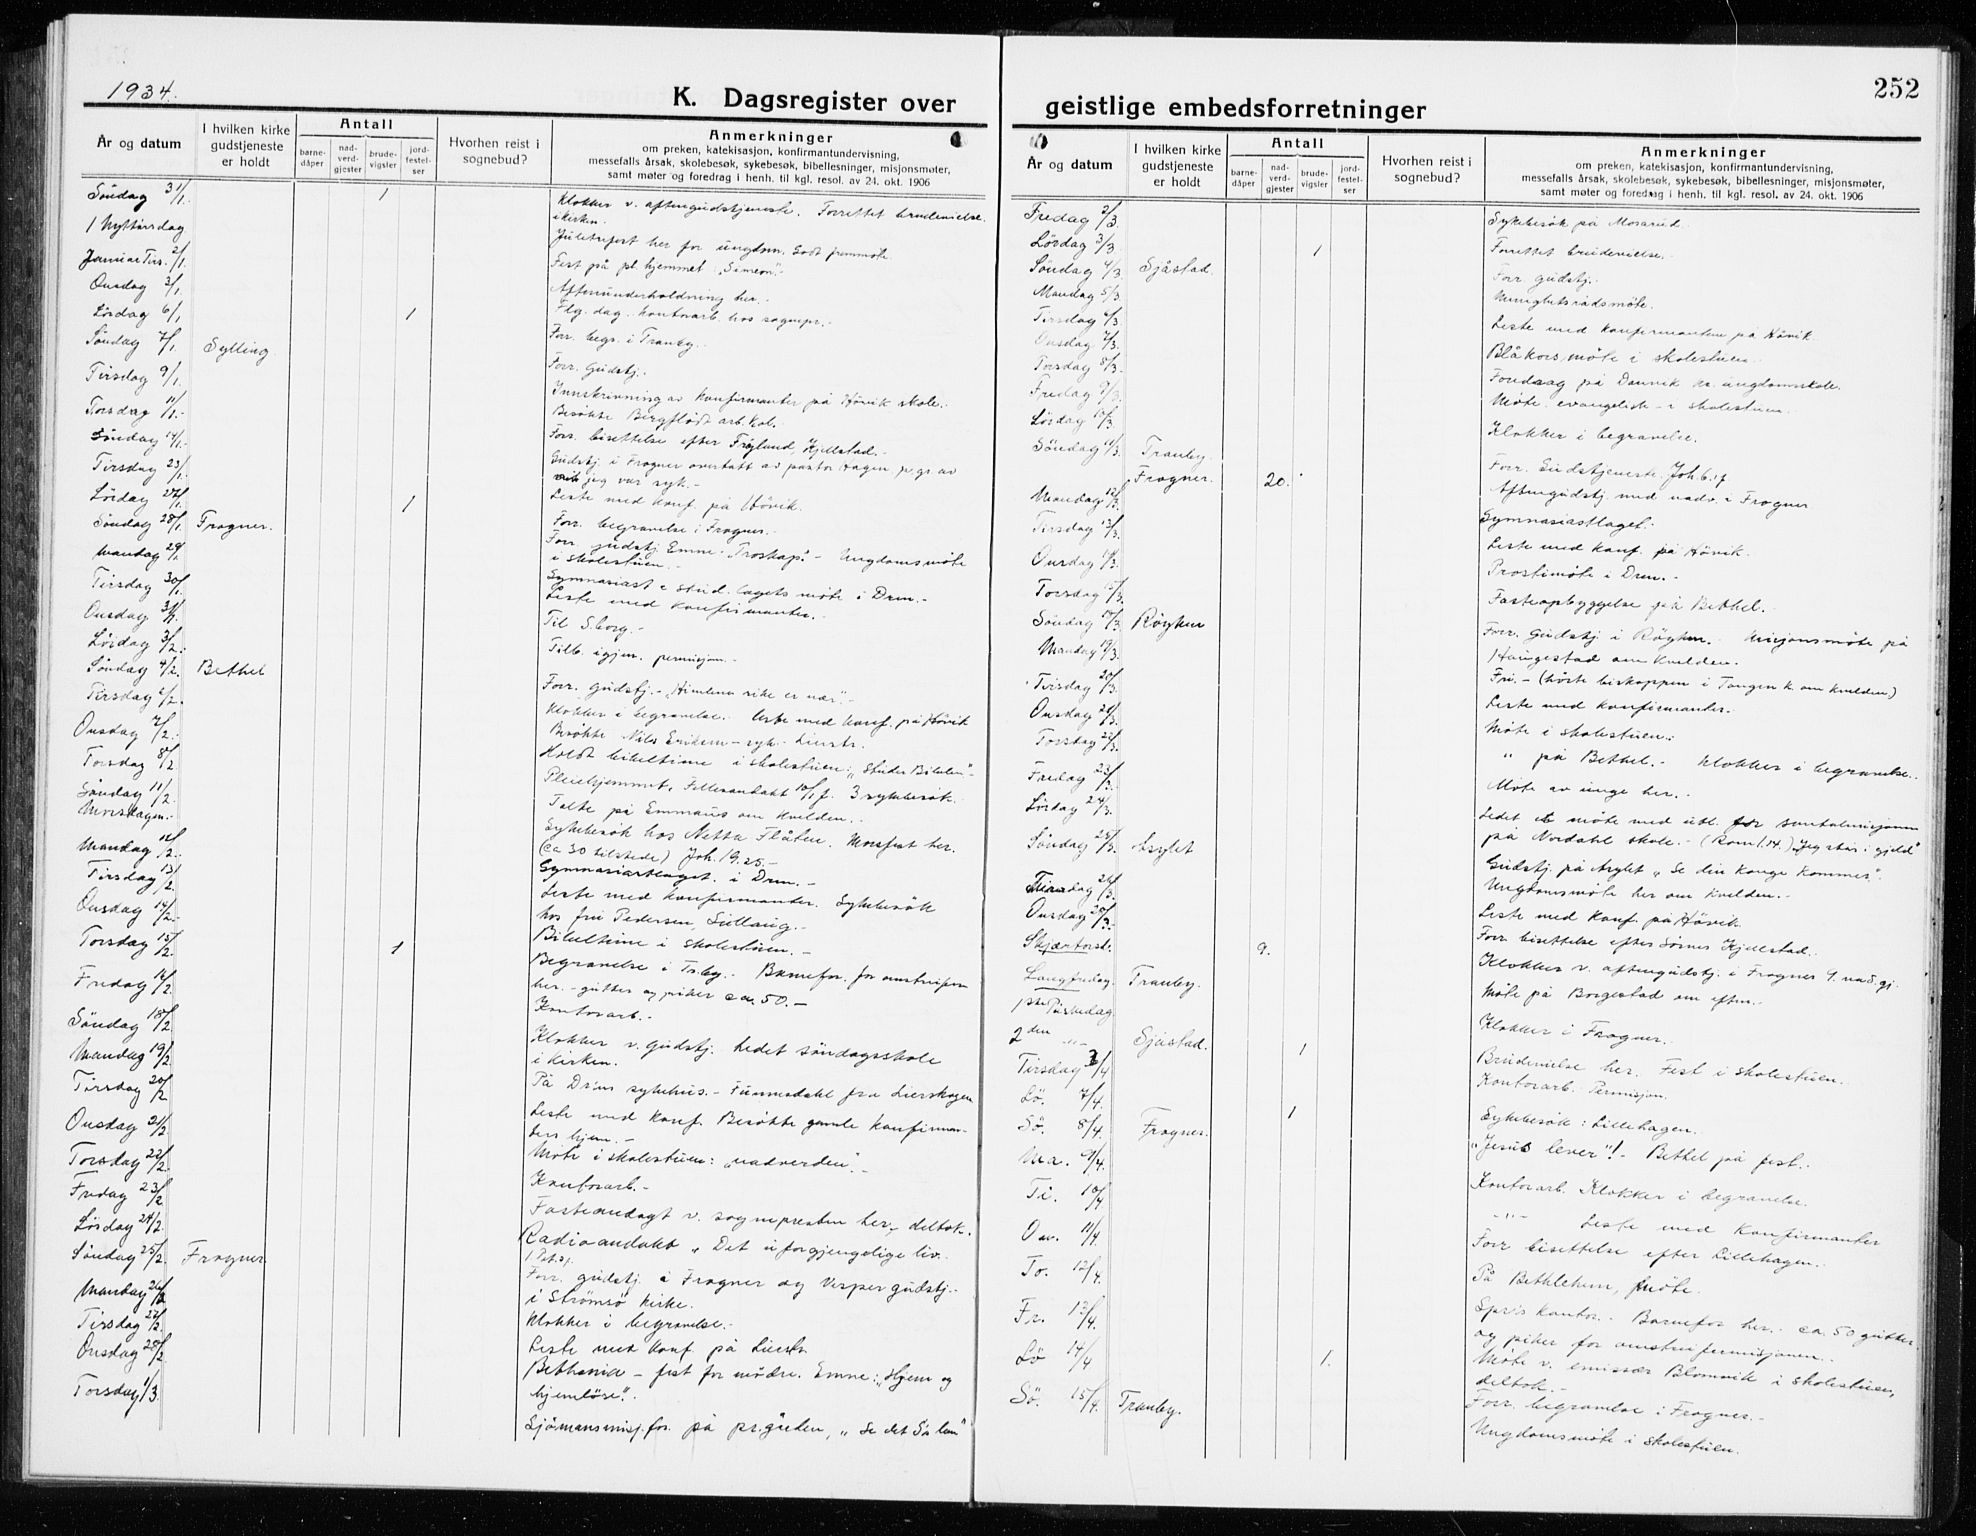 1934.
K. Dagsregister over
År og datum
I hvilken kirke gudstjeneste er holdt
Antall
barne-dåper
nad-verd-gjester
brude-vigsler
jord-festel-ser
Hvorhen reist i sognebud?
Anmerkninger
om preken, katekisasjon, konfirmantundervisning,
messefalls årsak, skolebesøk, sykebesøk, bibellesninger, misjonsmøter,
samt møter og foredrag i henh. til kgl. resol. av 24. okt. 1906
Söndag 31/1. 1
1 Nyttårsdag
Januar Tirs. 2/1.
Onsdag 3/1
Lördag 6/1 1
Söndag 7/1. Sylling
Tirsdag 9/1.
Torsdag 11/1.-
Söndag 14/1.-
Tirsdag 23/1.
Lördag 27/1. 1
Söndag 28/1. Frogner.
Mandag 29/1.
Tirsdag 30/1.
Onsdag 31/1.
Lördag 3/2.
Söndag 4/2. Bethel
Tirsdag 6/2.
Onsdag 7/2.-
Torsdag 8/2
Söndag 11/2.
Morsdagen.-
Mandag 12/2.
Tirsdag 13/2.
Onsdag 14/2.-
Torsdag 15/2. 1
Fredag 16/2.
Söndag 18/2.
Mandag 19/2.
Tirsdag 20/2
Onsdag 21/2
Torsdag 22/2.
Fredag 23/2
Lördag 24/2.
Söndag 25/2. Frogner.
Mandag 26/2
Tirsdag 27/2.
Onsdag 28/2
Torsdag 1/3.
Klokker v. aftengudstjeneste. Forrettet brudevielse
i kirken.
Juletrefest her for ungdom. Godt fremmöte
Fest på pl. hjemmet "Simeon".
Aftenunderholdning her.-
Flg. dag. kontorarb. hos sognepr.-
Forr. begr. i Tranby.-
Forr. Gudstj.-
Innskrivning av konfirmanter på Hövik skole.-
Besökte Bergflödt arb. kol.-
Forr. bisettelse efter Fröyland, Kjellstad.-
Gudstj. i Frogner overtatt av pastor Hagen p.gr. av
jeg var syk.-
Leste med konf. på Hövik.
Forr. begravelse i Frogner.-
Forr. gudstj. Emne: "Troskap".- Ungdomsmöte
i skolestuen.-
Gymnasiast & stud. lagets möte i Drm.-
Leste med konfirmanter.-
Til S.borg.-
Tilb. igjen. permisjon.-
Forr. gudstj.- "Himlens rike er nær".-
Klokker i begravelse.- Leste med konf. på Hövik
Besökte Nils Eriksen - syk.-
Holdt bibeltime i skolestuen: "Studer Bibelen"-
Pleiehjemmet, Fellesandakt 3 sykebesök.
Talte på Emmaus om kvelden.-
Sykebesök hos Netta Flåten. Morsfest her.
(ca 30 tilstede) Joh. 19.25.-
Gymnasiastlaget i Drm.-
Leste med konfirmanter. Sykebesök
hos fru Pedersen, Lillaug.-
Bibeltime i skolestuen.-
Begravelse i Tr.by.- Barnefor. for
her.- gutter og piker ca. 50.-
Kontorarb.-
Klokker v. gudstj. Ledet söndagsskole
i kirken.
På Dr.ms sykehus.- fra Lierskogen
Leste med konf. Besökte gamle konfirman-
ders hjem.-
Möte i skolestuen: "nadverden".-
Kontorarb.-
Fasteandagt v. sognepresten her, deltok.
Radioandakt "Det uforgjengelige liv.
1 Pet.
Forr. gudstj. i Frogner og Vesper gudstj.
i Strömsö kirke.
Klokker i begravelse.-
Leste med konf. på
Bethania - fest for mödre. Emne: "Hjem og
hjemlöse".
Sjömannsmisj. for. på pr.gården,
252
geistlige embedsforretninger
År og datum
I hvilken kirke gudstjeneste er holdt
Antall
barne-dåper
nad-verd-gjester
brude-vigsler
jord-festel-ser
Hvorhen reist i sognebud?
Anmerkninger
om preken, katekisasjon, konfirmantundervisning,
messefalls årsak, skolebesøk, sykebesøk, bibellesninger, misjonsmøter,
samt møter og foredrag i henh. til kgl. resol. av 24. okt. 1906
Fredag 2/3.
Lördag 3/3. 1
Söndag 4/3. Sjåstad.
Mandag 5/3.
Tirsdag 6/3.
Onsdag 7/3.
Torsdag 8/3.
Fredag 9/3.
Lördag 10/3.
Söndag 11/3. Tranby.
Frogner. 20.
Mandag 12/3.
Tirsdag 13/3.
Onsdag 14/3.
Torsdag 15/3.
Söndag 18/3. Röyken
Mandag 19/3.
Tirsdag 20/3.
Onsdag 21/3.
Torsdag 22/3.
Fredag 23/3.
Lördag 24/3.
Söndag 25/3. Asylet
Tirsdag 26/3.
Onsdag 28/3.-
Skjærtorsd. 9.
Langfredag. Tranby.
1ste Påskedag
2den -"- Sjåstad. 1
Tirsdag 3/4
Lö. 7/4. 1
Sö. 8/4. Frogner.
Ma. 9/4.
Ti. 10/4
On. 11/4
To. 12/4.
Fr. 13/4.
Lö 14/4 1.
Sö. 15/4. Tranby.
Sykebesök på Mosarud.
Forrettet brudevielse.-
Forr. gudstj.
Menighetsrådsmöte.
Leste med konfirmantene på Hövik
Blåkorsmöte i skolestuen.
Foredrag på Danvik kr. ungdomsskole.
Möte evangelisk - i skolestuen.
Klokker i begravelse.
Forr. Gudstjeneste. Joh. 6.
Aftengudstj. med nadv. i Frogner
Gymnasiastlaget.-
Leste med konf. på Hövik.-
Prostimöte i Drm.-
Fasteopbyggelse på Bethel.-
Forr. Gudstj. i Röyken.- Misjonsmöte på
Haugestad om kvelden.-
Fri.- (hörte biskoppen i Tangen k. om kvelden)
Leste med konfirmanter.-
Möte i skolestuen.-
" på Bethel.- Klokker i begravelse.-
Möte av unge her.-
Ledet et möte med utl. for santalmisjonen
på Nordahl skole.- (Rom. 1.14.) "Jeg står i gjeld"
Gudstj. på Asylet "Se din konge kommer".-
Ungdomsmöte her om kvelden.-
Leste med konf. på Hövik.-
Forr. bisettelse efter Sörnes Kjellstad.-
Klokker v. aftengudstj. i Frogner 9. nad. gj.
Möte på Borgestad om eften.-
Klokker i Frogner.
Brudevielse her. Fest i skolestuen.
Kontorarb. Permisjon.
Sykebesök: Lillehagen.-
"Jesus lever"!- Bethel på fest.-
Kontorarb. Klokker i begravelse.
-"- Leste med konfirmanter
Forr bisettelse efter Lillehagen.-
På Bethlehem, möte.
Spr's kontor.- Barnefor her.- ca. 50 gutter
og piker for
Möte v. emissær Blomvik i skolestuen,
deltok.-
Forr. begravelse i Frogner.-
Ungdomsmöte i skolestuen.